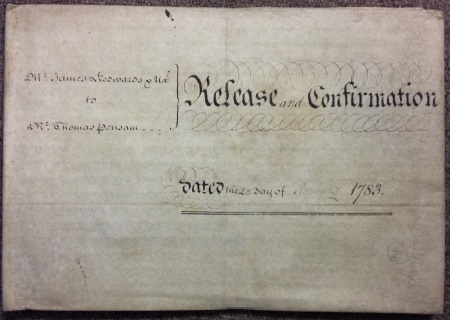 Mr. James Kedwards & Ux
to
Mr. Thomas Pensam
Release and Confirmation
Dated the 28 day of 1783.